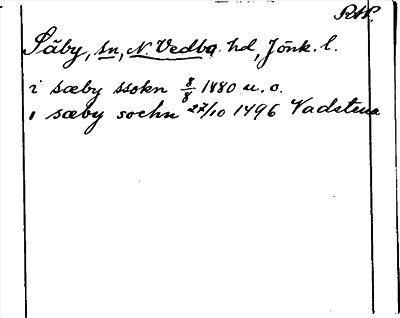 RAP.
Säby, sn, N. Vedbo hd, Jönk. l.
i sæby ssokn 8/8 1480 u. o.
i sæby sochn 27/10 1496 Vadstena